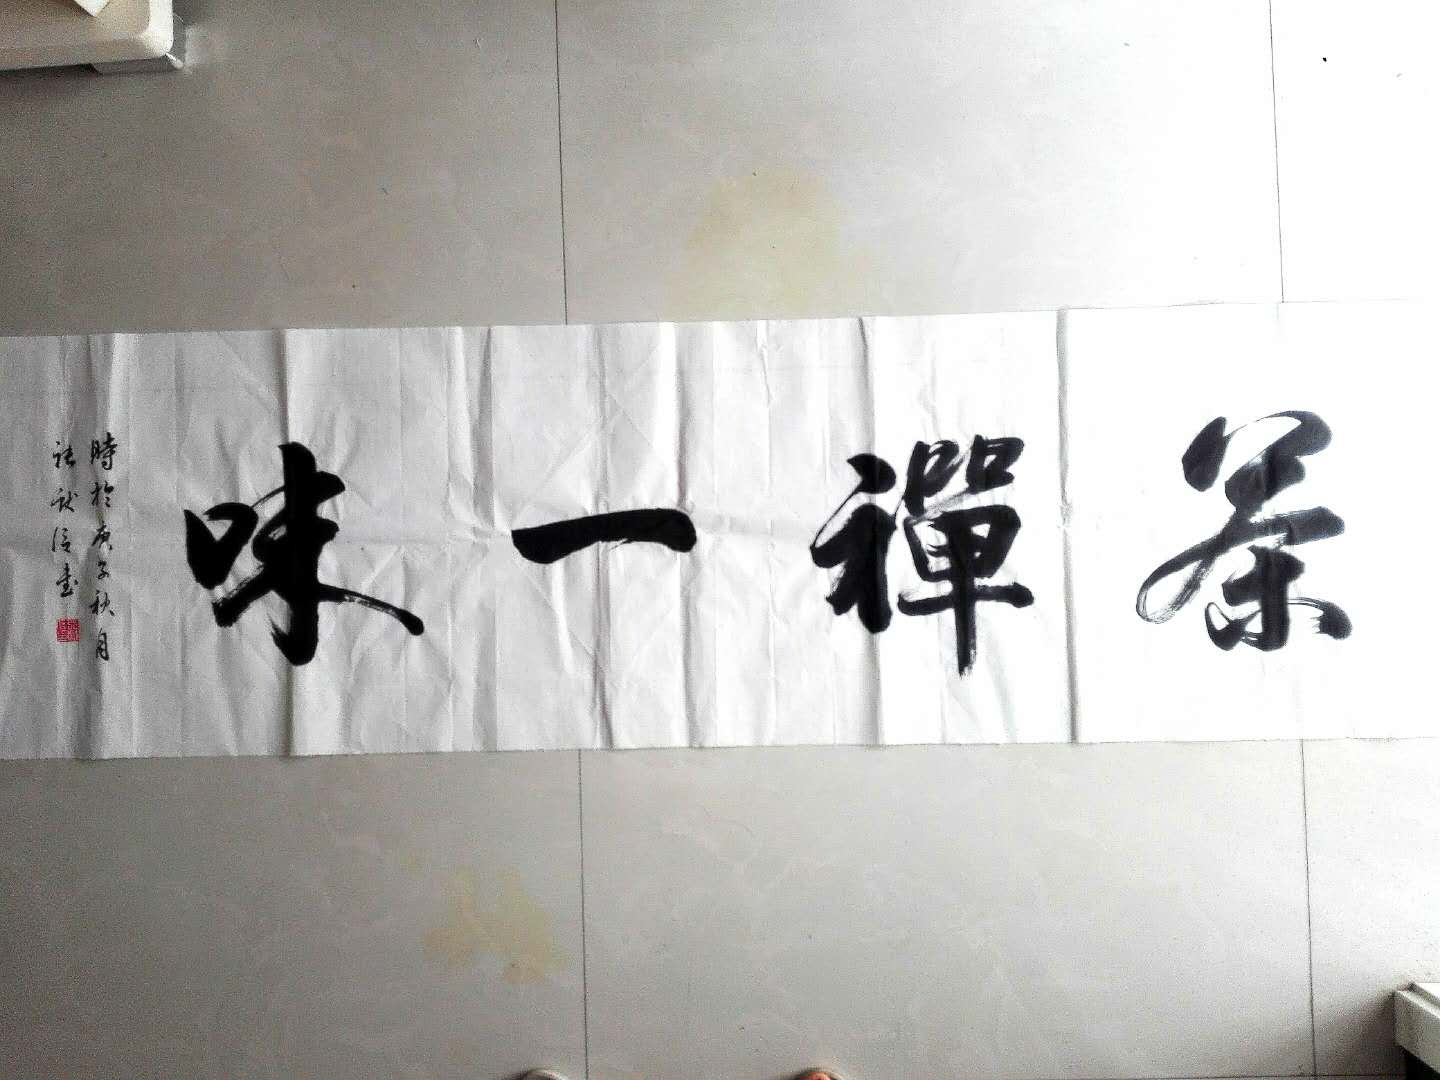 茶禪一味
時於庚子秋月
信書